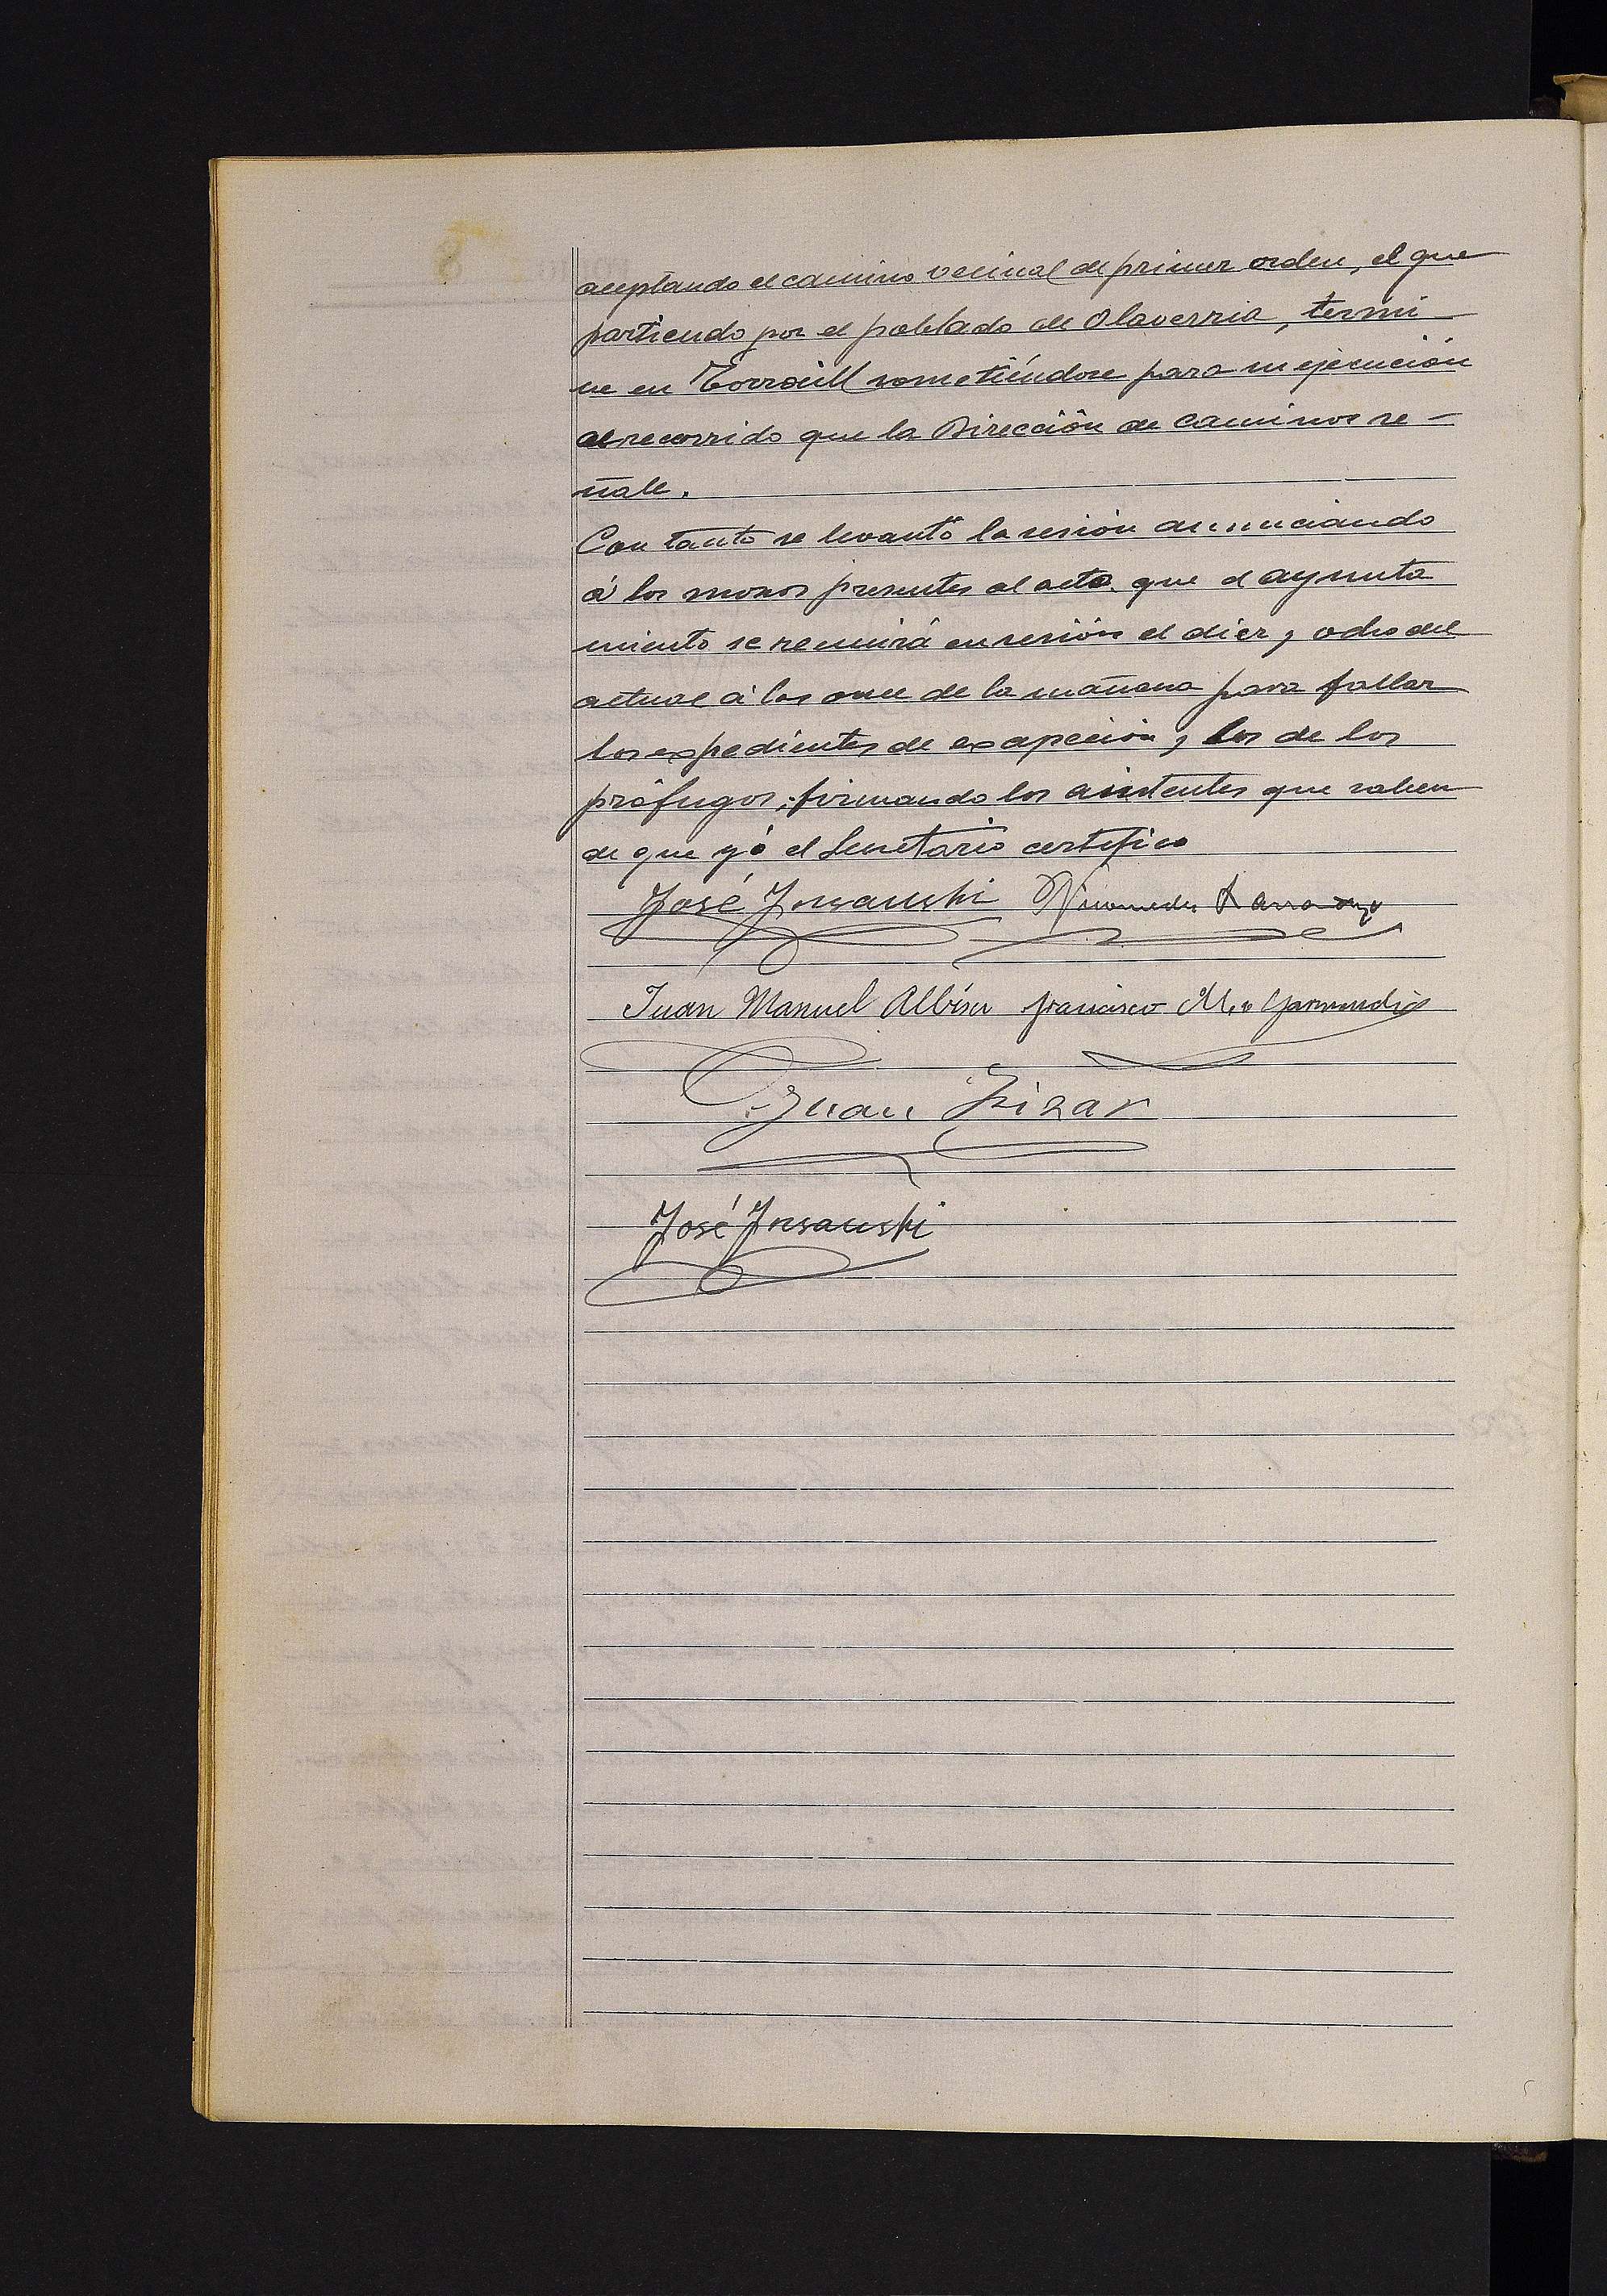 aceptando el camino vecinal de primer orden, el que
partiendo por el poblado de Olaverria, termi
ne en sometiéndose para su ejecución
al recorrido que la Dirección de Caminos se-
ñale.
Con tanto se levantó la sesión anunciando
á los mozos presentes al acto que el ayunta
miento se reunirá en sesión el diez y ocho del
actual á las once de la mañana para fallar
los expedientes de excepción y los de los
prófugos; firmando los asistentes que saben
de que yó el Secretario certifico
José Insausti Nicomedes
Juan Manuel Albisu Francisco M.a Garmendia
Juan Irizar
José Insausti